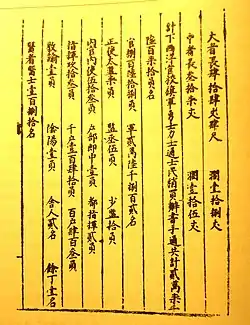 大者長肆拾肆丈肆尺　闊壹拾捌丈
中者長叁拾柒丈　闊壹拾伍丈
計下西洋官校旗軍勇士力士通士民稍買辦書手通共計貳萬柒千
陸百柒拾員名
官捌百陸拾捌員　軍貳萬陸千捌百貳名
正使太監柒員　監丞伍員　少監拾員
內官內使伍拾叁員　戶部郎中壹員　都指揮貳員
指揮玖拾叁員　千戶壹百肆拾員　百戶肆百叁員
教諭壹員　陰陽壹員　舍人貳名　餘丁壹名
醫者醫士壹百捌拾名